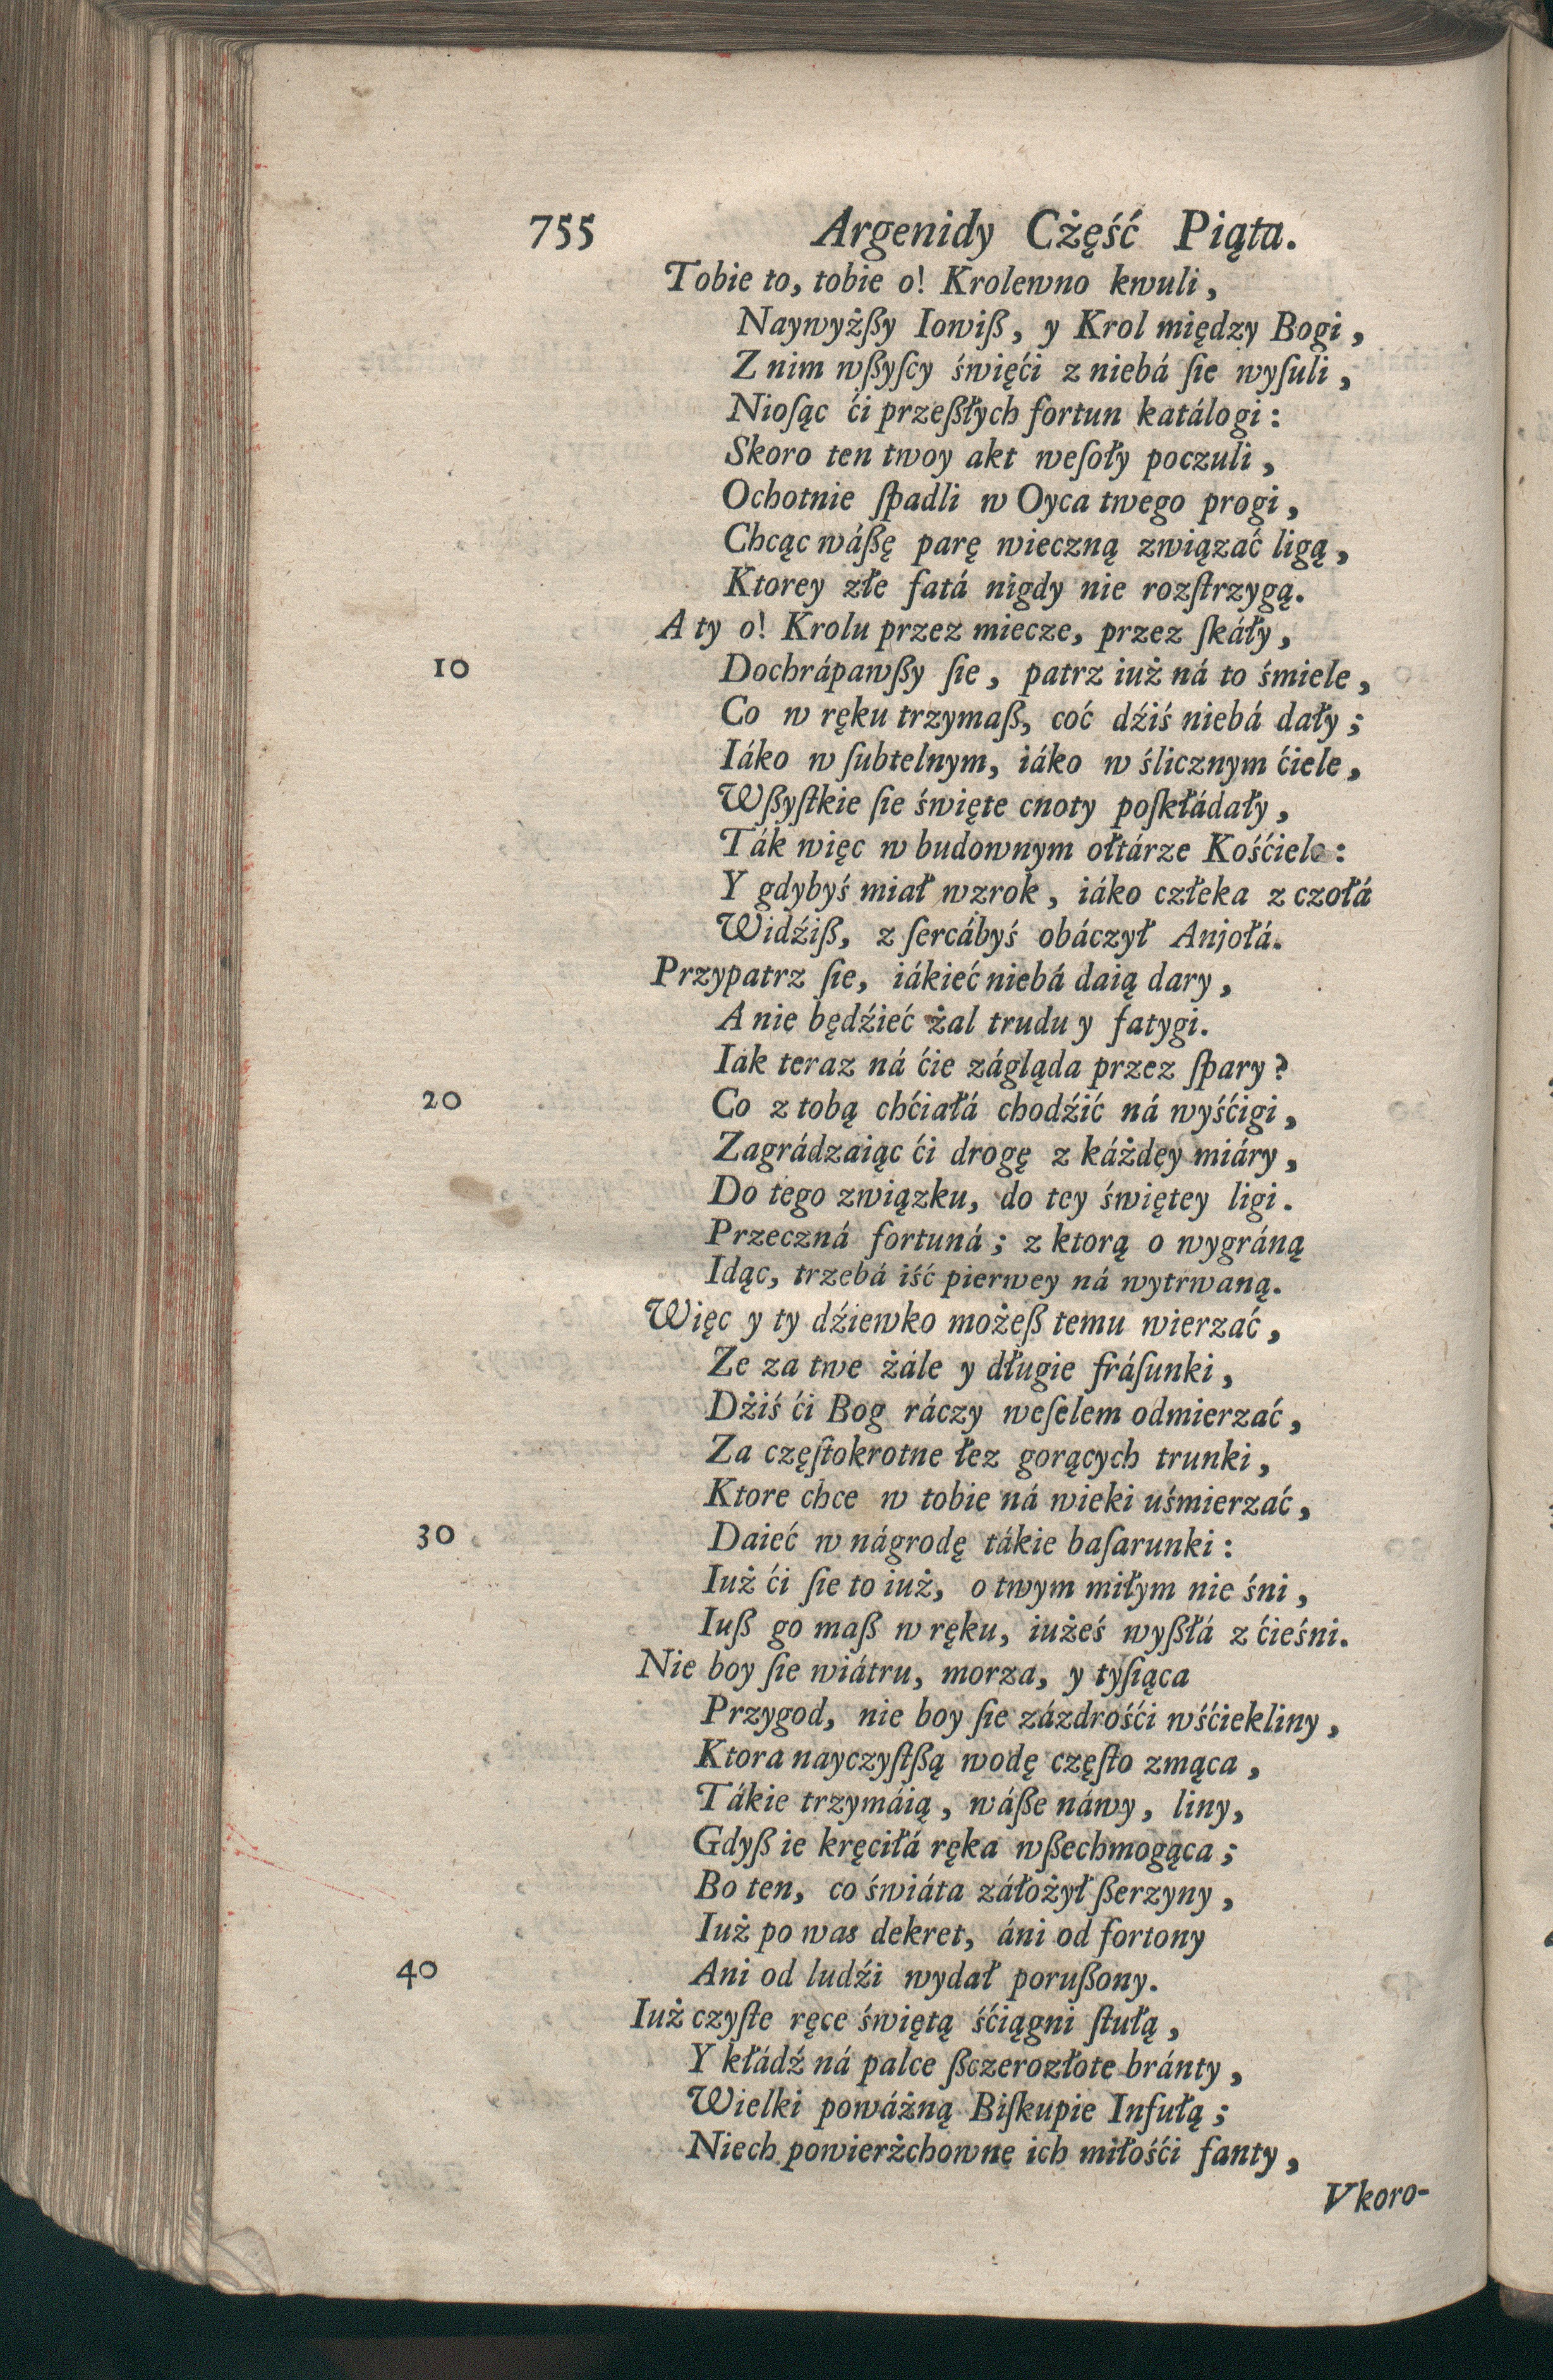 755 Argenidy Cżęść Piąta.
Tobie to, tobie o! Krolewno kwuli,
Naywyżßy Iowiß, y Krol między Bogi,
Z nim wßyſcy święći z niebá ſie wyſuli,
Nioſąc ći przeßłych fortun katálogi:
Skoro ten twoy akt weſoły poczuli,
Ochotnie ſpadli w Oyca twego progi,
Chcąc wáßę parę wieczną związać ligą,
Ktorey złe fatá nigdy nie rozſtrzygą.
A ty o! Krolu przez miecze, przez ſkáły,
10 Dochrápawßy ſie, patrz iuż ná to śmiele,
Co w ręku trzymaß, coć dźiś niebá dały;
Iáko w ſubtelnym, iáko w ślicznym ćiele,
Wßyſtkie ſie święte cnoty poſkłádały,
Ták więc w budownym ołtárze Kośćiele:
Y gdybyś miał wzrok, iáko człeka z czołá
Widźiß, z ſercábyś obáczył Anjołá.
Przypatrz ſie, iákieć niebá daią dary,
A nie będźieć żal trudu y fatygi.
Iák teraz ná ćie zágląda przez ſpary?
20 Co z tobą chćiałá chodźić ná wyśćigi,
Zagrádzaiąc ći drogę z káżdey miáry,
Do tego związku, do tey świętey ligi.
Przeczná fortuná; z ktorą o wygráną
Idąc, trzebá iść pierwey ná wytrwaną.
Więc y ty dźiewko możeß temu wierzać,
Ze za twe żále y długie fráſunki,
Dżiś ći Bog ráczy weſelem odmierzać,
Za częſtokrotne łez gorących trunki,
Ktore chce w tobie ná wieki uśmierzać,
30 Daieć w nágrodę tákie baſarunki:
Iuż ći ſie to iuż, o twym miłym nie śni,
Iuß go maß w ręku, iużeś wyßłá z ćieśni.
Nie boy ſie wiátru, morza, y tyſiąca
Przygod, nie boy ſie zázdrośći wśćiekliny,
Ktora nayczyſtßą wodę częſto zmąca,
Tákie trzymáią, wáße náwy, liny,
Gdyß ie kręciłá ręka wßechmogąca;
Bo ten, co świáta záłożył ßerzyny,
Iuż po was dekret, áni od fortony
40 Ani od ludźi wydał porußony.
Iuż czyſte ręce świętą śćiągni ſtułą,
Y kłádź ná palce ßczerozłote bránty,
Wielki poważną Biſkupie Infułą;
Niech powierżchowne ich miłośći fanty,
Vkoro-